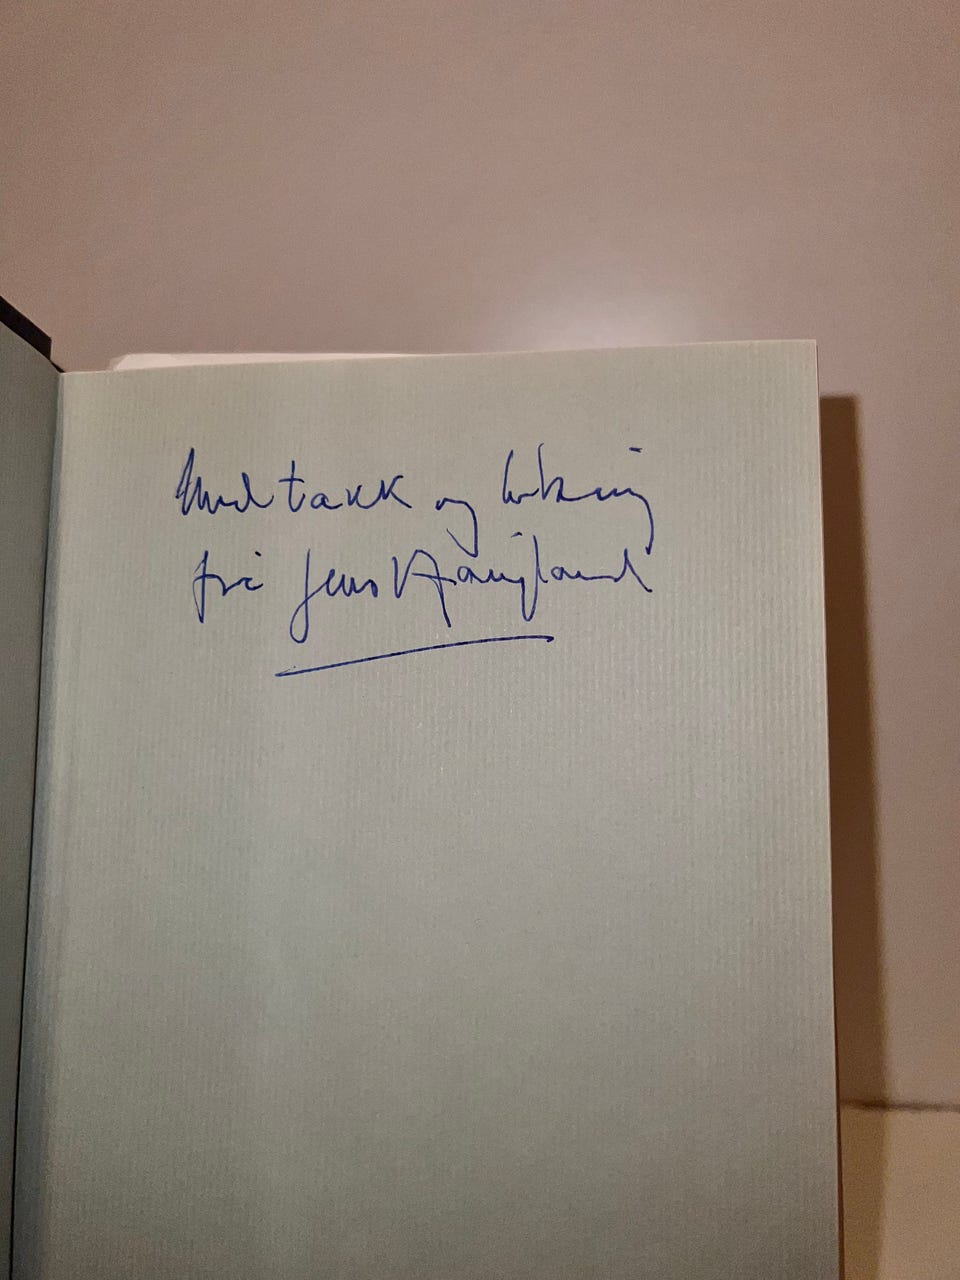 Med takk og helsing
frå Jens Haugland